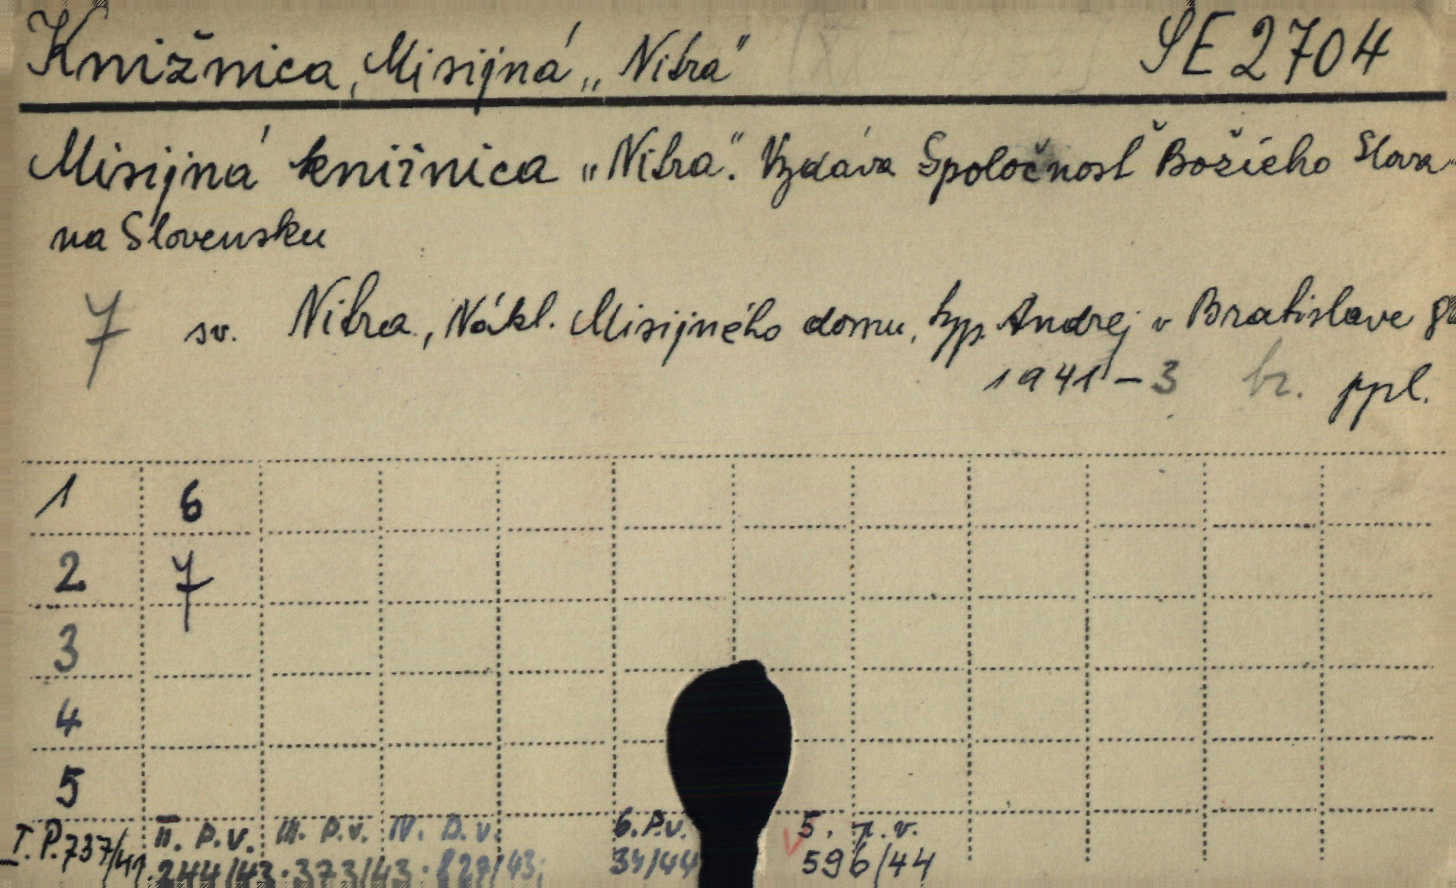 Knižnica, Misijná „Nitra" SE 2704
Misijná knižnica „Nitra". Vydáva Spoločnosť Božieho Slova
na Slovensku
7 sv. Nitra, Nákl. Misijného domu, typ. Andrej v Bratislave 8°
1941-3 br. ppl.
1 6
2 7
3
4
5
I. P. 737/41. II. P.v. III. P.v. IV. P.v. 6. P.v. 5. p.v.
244/43. 373/43. 827/43; 34/44 596/44